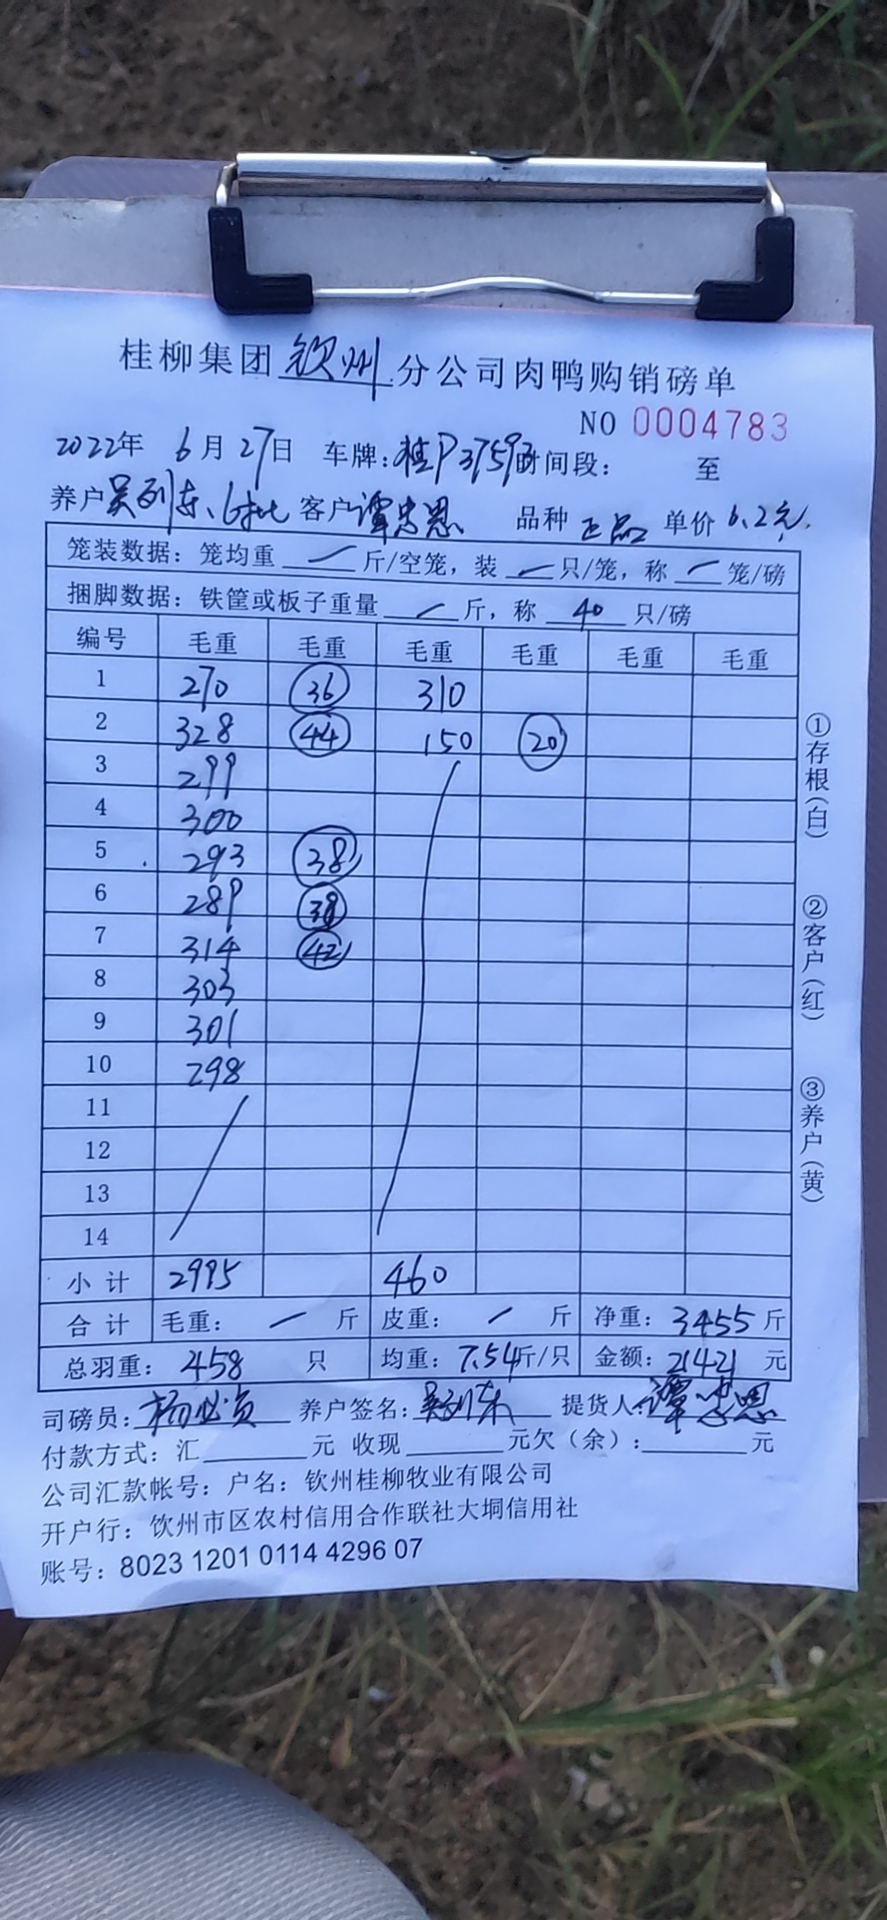 桂柳集团钦州分公司肉鸭购销磅单
NO 0004783
2022年 6月27日 车牌:桂P3759 时间段: 至
养户吴列东、6批 客户谭忠恩 品种 正品 单价 6.2元.
笼装数据: 笼均重 — 斤/空笼, 装 — 只/笼, 称 — 笼/磅
捆脚数据: 铁筐或板子重量 — 斤, 称 40 只/磅
编号 毛重 毛重 毛重 毛重 毛重 毛重
1 270 36 310
2 328 44 150 20
3 299
4 300
5 293 38
6 289 38
7 314 42
8 303
9 301
10 298
11
12
13
14
小计 2995 460
合计 毛重: — 斤 皮重: — 斤 净重: 3455 斤
总羽重: 458 只 均重: 7.54斤/只 金额: 21421 元
司磅员: 养户签名: 吴列东 提货人: 谭忠恩
付款方式: 汇 元 收现 元欠(余): 元
公司汇款帐号: 户名: 钦州桂柳牧业有限公司
开户行: 钦州市区农村信用合作联社大垌信用社
账号: 8023 1201 0114 4296 07
①存根(白)
②客户(红)
③养户(黄)